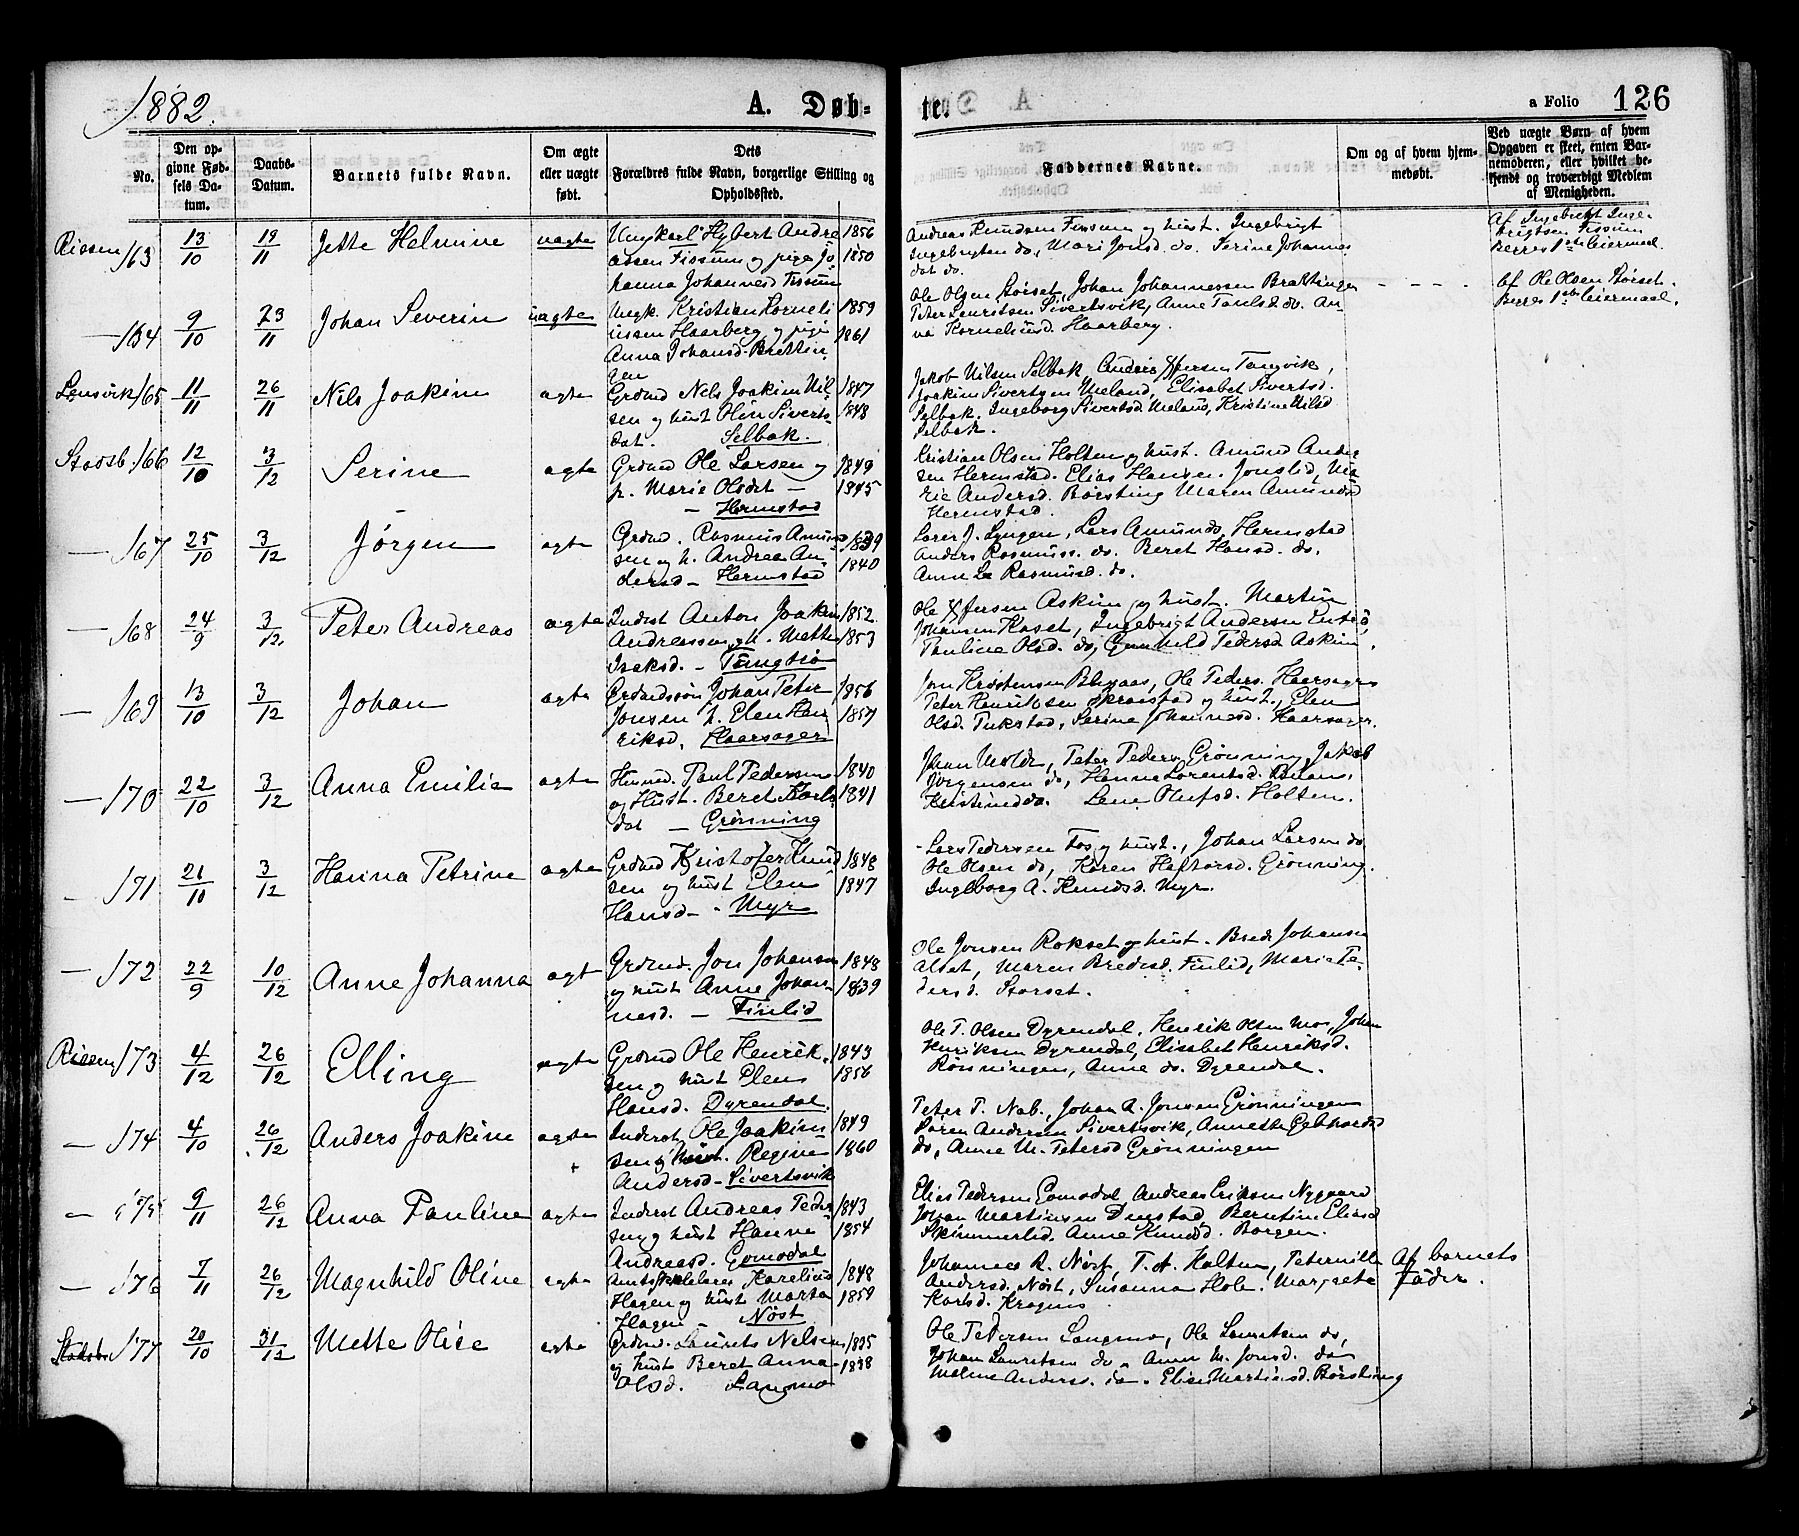 1882.
A. Døb-
te.
a Folio 126
No.
Den op-
givne Fød-
sels Da-
tum.
Daabs-
Datum.
Barnets fulde Navn.
Om ægte
eller uægte
født.
Dets
Forældres fulde Navn, borgerlige Stilling og
Opholdssted.
Faddernes Navne.
Om og af hvem hjem-
medøbt.
Ved uægte Børn af hvem
Opgaven er skeet, enten Bar-
nemoderen, eller hvilket be-
kjendt og troværdigt Medlem
af Menigheden.
Rissen 163 13/10 19/11 Jette Helmine uægte
Ungkarl Hybert Andre 1856
assen Fissum og pige Jo 1850
hanna Johannesd Fissum
Andreas Knudsen Fissum og hust. Ingebrigt
Ingebrigtsen do, Mari Jonsd. do. Serine Johannes
dat do.
Af Ingebrigt Inge-
brigtsen Fissum
Berres 1ste Leiermaal.
— 164 9/10 23/11 Johan Severin uægte
Ungk. Kristian Korneli 1859
ussen Haarberg og pige 1861
Anna Johansd. Brettin
gen
Ole Olsen Størset, Johan Johannessen Brattingen
Peter Lauritsen Sivertsvik, Anne Paulsd do. An-
na Kornelsusd. Haarberg.
Af Ole Olsen Størset.
Berres 1ste Leiermaal.
Lensvik 165 11/11 26/11 Nils Joakim ægte
Grdmd Nils Joakim Nil 1847
sen og hust Olin Siverts 1848
dat. Selbak.
Jakob Nilsen Selbak, Anders Tangvik,
Joakim Sivertsen Meland, Elisabet Sivertsd.
Selbak. Ingeborg Sivertsd. Meland, Kristine Nilsd
Selbak.
Stadsb. 166 12/10 3/12 Serine ægte
Grdmd Ole Larsen og 1849
h. Marie Olsdat — 1845
— Hermstad
Kristian Olsen Holten og hust. Amund Ander
sen Hermstad. Elias Hansen Jonslid, Ma
rie Andersd. Børsting Maren Amundsd
Hermstad.
— 167 25/10 3/12 Jørgen ægte
Grdmd. Rasmus Amund 1839
sen og h. Andrea An 1840
dersd — Hermstad
Lars Amunds. Hermstad
Anders Rasmuss. do. Beret Hansd. do.
Anne Rasmusd. do.
— 168 24/9 3/12 Peter Andreas ægte
Inderst Anton Joakim 1852
Andreassen og h. Mette 1853
Isaksd. — Tungtrø
Askim og hust. Martin
Johansen Raset, Ingebrigt Andersen
Pauline Olsd. do, Gunhild Pedersd Askim.
— 169 13/10 3/12 Johan ægte
Grdmdssøn Johan Peter 1856
Jonsen h. Elen Hen 1857
riksd. Haarsager
Jon Kristensen Ole Peders. Haarsager
Peter Henriksen og hust., Elen
Olsd. Pukstad, Serine Johannesd. Haarsager.
— 170 22/10 3/12 Anna Emilie ægte
Husmd. Paul Pedersen 1840
og Hust. Beret Karls 1841
dat — Grønning
Johan Molde, Peter Peders Grønning, Jakob
Jørgensen do, Hanna Lorentsd.
Kristine do. Lene Olufsd. Holten.
— 171 21/10 3/12 Hanna Petrine ægte
Grdmd Kristofer Knud 1848
sen og hust Elen 1847
Hansd — Myr
Lars Pedersen Fos og hust., Johan Larsen do
Ole Olsen do, Karen Haftorsd. Grønning.
Ingeborg A. Knudsd. Myr.
— 172 22/9 10/12 Anne Johanna ægt
Grdmd. Jon Johansen 1848
og hust Anne Johan 1839
nesd. — Finlid
Ole Jonsen Rokset og hust. Brede Johansen
Alset, Maren Bredesd. Finlid, Marie Pe-
dersd. Storset.
Rissen 173 4/12 26/12 Elling ægte
Grdmd Ole Henrik 1843
sen og hust Elen 1856
Hansd. Dyrendal.
Ole T. Olsen Dyrendal, Henrik Olsen Mo, Johan
Henriksen Dyrendal, Elisabet Henriksd.
Rønningen, Anne do. Dyrendal.
— 174 4/10 26/12 Anders Joakim ægte
Inderst Ole Joakim 1849
sen og hust. Regine 1860
Andersd — Sivertsvik
Peter P. Nab., Johan A. Jonsen Grønningen
Søren Andersen Sivertsvik, Annette Gebhardsd
do, Anne M. Petersd Grønningen
— 175 9/11 26/12 Anna Pauline ægte
Inderst Andreas Peder 1843
sen og hust Hanne 1854
Andreasd. Gomodal
Elias Pedersen Gomodal, Andreas Eriksen Nygaard
Johan Martinsen Berntine Eliasd
Skimmerlid. Anne Knudsd. Borgen.
— 176 7/11 26/12 Magnhild Oline ægte
Amtsskolelærer Karelius 1848
Hagen og hust Marta 1859
Hagen — Nøst
Johannes R. Nøst, P. A. Holten, Peternille
Andersd. Nøst, Susanna Hole. Margrete
Karlsd. Kragnes
Af barnets
Fader.
Stadsb. 177 20/10 31/12 Mette Olise ægte
Grdmd. Laurits Nelsen 1835
og hust Beret Anna 1838
Olsd. Langmo
Ole Pedersen Langmo, Ole Lauritsen do,
Johan Lauritsen do, Anne M. Jonsd. do
Maline Anders. do. Elise Martinsd. Børsting